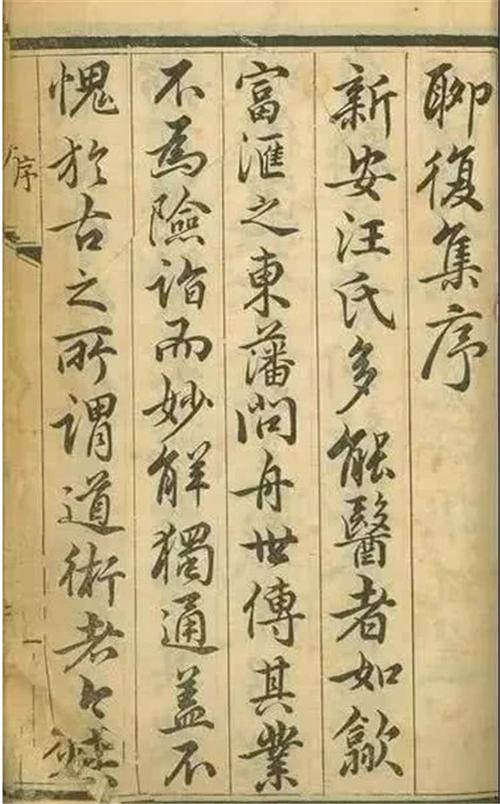 聊復集序
新安汪氏多能醫者如歙
富滙之東藩問舟世傳其業
不為險詣而妙解獨通蓋不
愧於古之所謂道術者已
序